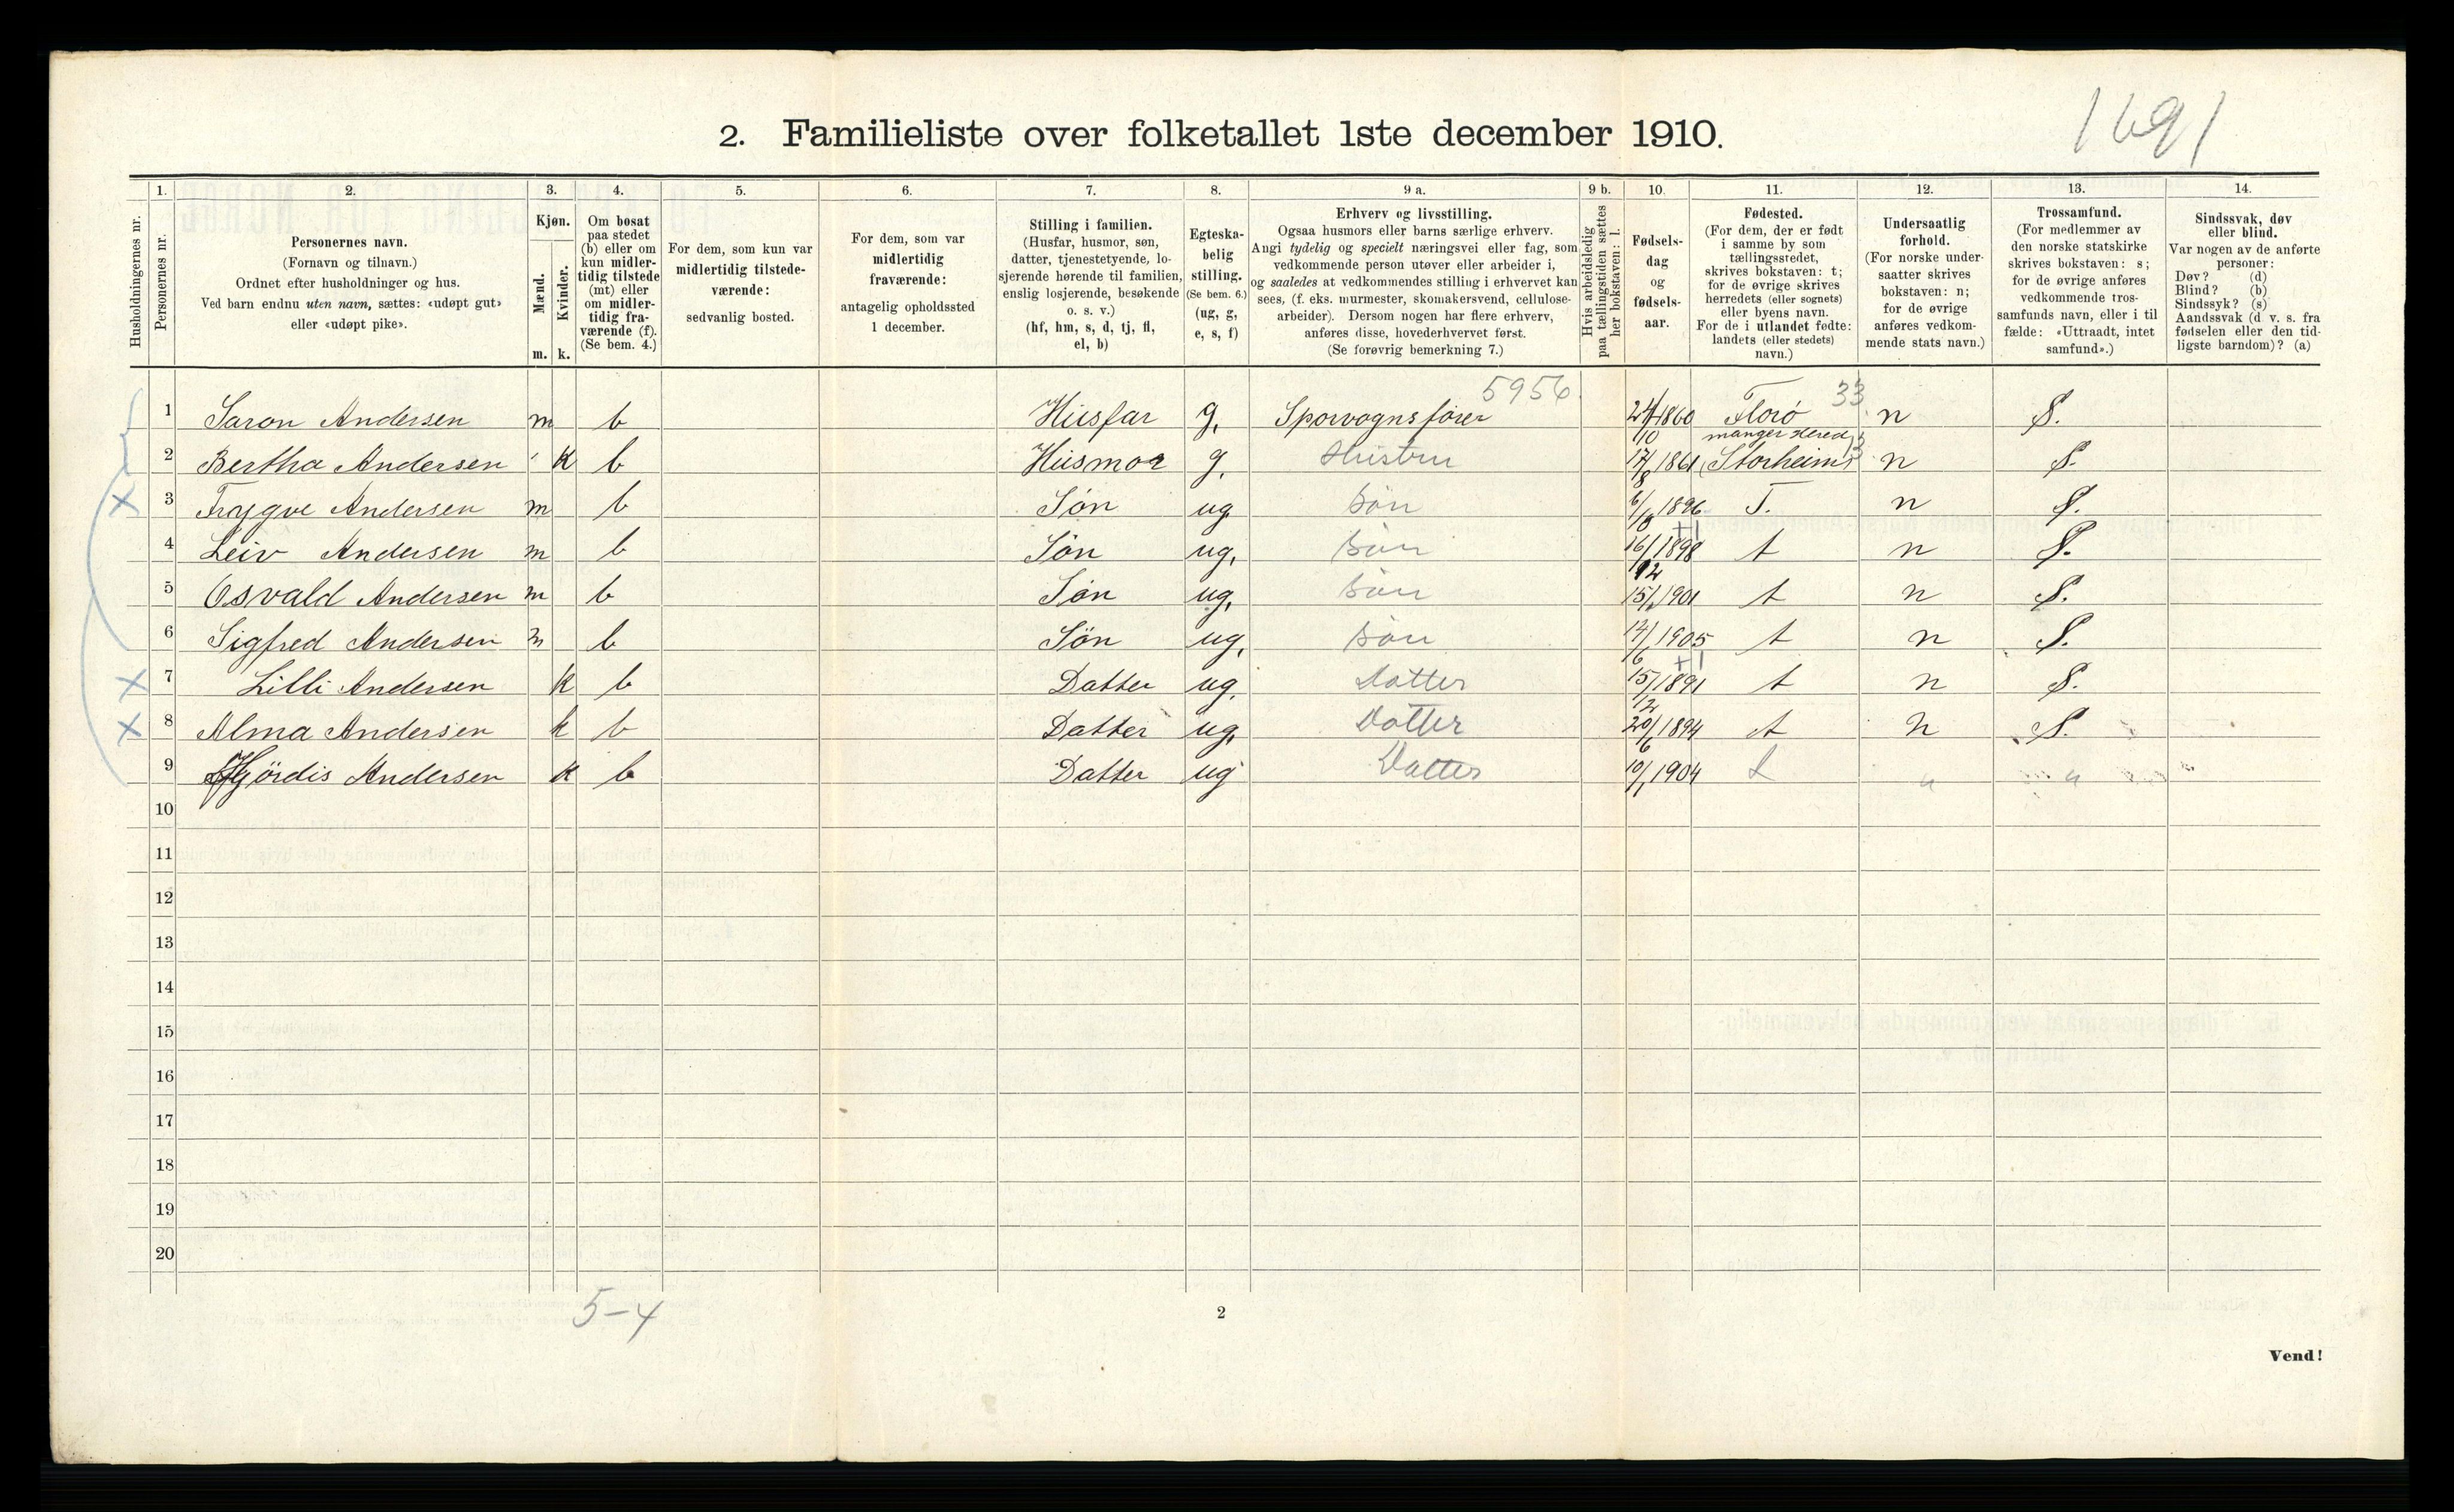 1691
2. Familieliste over folketallet 1ste december 1910.
1. 2. 3. 4. 5. 6. 7. 8. 9 a. 9 b. 10. 11. 12. 13. 14.
Husholdningernes nr.
Personernes nr.
Personernes navn.
(Fornavn og tilnavn.)
Ordnet efter husholdninger og hus.
Ved barn endnu uten navn, sættes: «udøpt gut»
eller «udøpt pike».
Kjøn.
Mænd.
Kvinder.
m. k.
Om bosat
paa stedet
(b) eller om
kun midler-
tidig tilstede
(mt) eller
om midler-
tidig fra-
værende (f).
(Se bem. 4.)
For dem, som kun var
midlertidig tilstede-
værende:
sedvanlig bosted.
For dem, som var
midlertidig
fraværende:
antagelig opholdssted
1 december.
Stilling i familien.
(Husfar, husmor, søn,
datter, tjenestetyende, lo-
sjerende hørende til familien,
enslig losjerende, besøkende
o. s. v.)
(hf, hm, s, d, tj, fl,
el, b)
Egteska-
belig
stilling.
(Se bem. 6.)
(ug, g,
e, s, f)
Erhverv og livsstilling.
Ogsaa husmors eller barns særlige erhverv.
Angi tydelig og specielt næringsvei eller fag, som
vedkommende person utøver eller arbeider i,
og saaledes at vedkommendes stilling i erhvervet kan
sees, (f. eks. murmester, skomakersvend, cellulose-
arbeider). Dersom nogen har flere erhverv,
anføres disse, hovederhvervet først.
(Se forøvrig bemerkning 7.)
Hvis arbeidsledig
paa tællingstiden sættes
her bokstaven: l.
Fødsels-
dag
og
fødsels-
aar.
Fødested.
(For dem, der er født
i samme by som
tællingsstedet,
skrives bokstaven: t;
for de øvrige skrives
herredets (eller sognets)
eller byens navn.
For de i utlandet fødte:
landets (eller stedets)
navn.)
Undersaatlig
forhold.
(For norske under-
saatter skrives
bokstaven: n;
for de øvrige
anføres vedkom-
mende stats navn.)
Trossamfund.
(For medlemmer av
den norske statskirke
skrives bokstaven: s;
for de øvrige anføres
vedkommende tros-
samfunds navn, eller i til
fælde: «Uttraadt, intet
samfund».)
Sindssvak, døv
eller blind.
Var nogen av de anførte
personer:
Døv? (d)
Blind? (b)
Sindssyk? (s)
Aandssvak (d. v. s. fra
fødselen eller den tid-
ligste barndom)? (a)
5956 33
1 Saron Andersen m b Husfar g, Sporvognsfører 24/10 1860 Florö n S.
2 Bertha Andersen k b Husmor g, Hustru 17/8 1861 manger Hered Storheim n S.
3 Trygve Andersen m b Sön ug Sön 1896 T. n S.
4 Leiv Andersen m b Sön ug, Sön 16/12 1898 t n S.
5 Osvald Andersen m b Sön ug, Sön 1901 t n S.
6 Sigfred Andersen m b Sön ug, Sön 14/6 1905 t n S.
7 Lilli Andersen k b Datter ug, Datter 15/12 1891 t n S.
8 Alma Andersen k b Datter ug, Datter 20/6 1894 t n S.
9 Hjördis Andersen k b Datter ug Datter 10/1 1904 t " "
10
11
12
13
14
15
16
17
18
19
20
5-4
2
Vend!